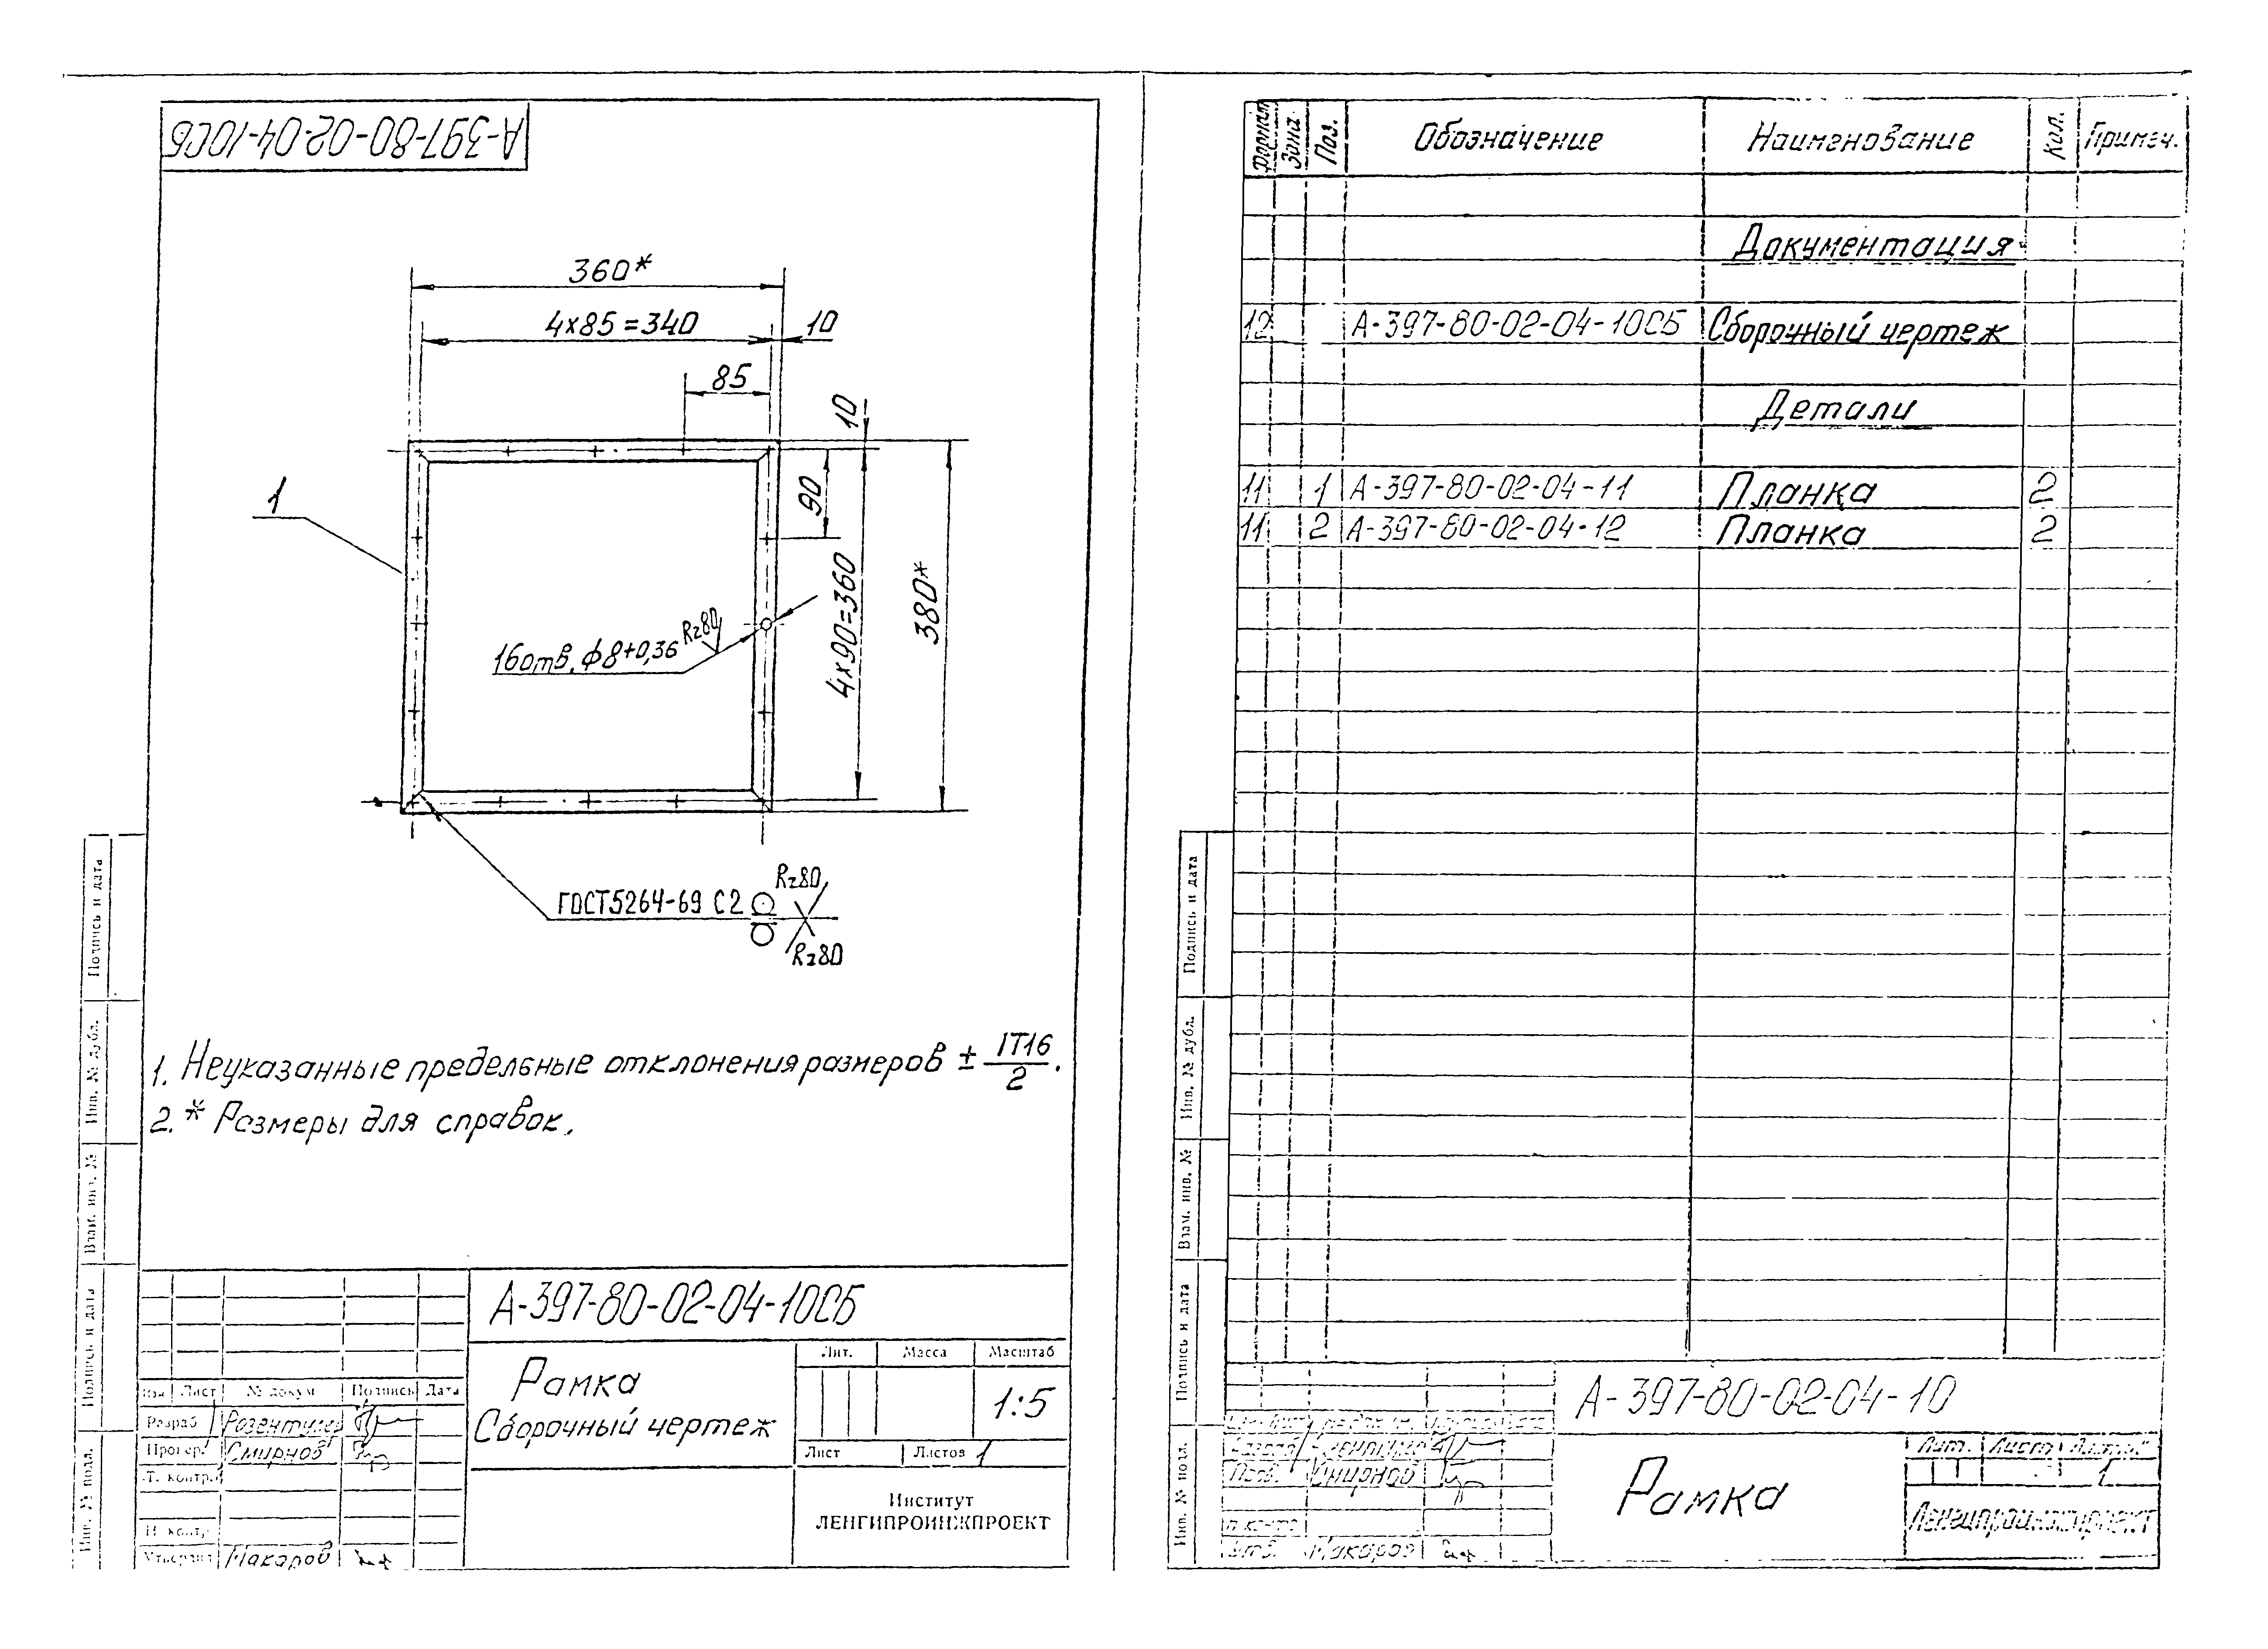 А-397-80-02-04-10СБ
360*
4×85=340
10
85
10
90
1
4×90=360
380*
16отв. ф8+0,36 Rz80
ГОСТ5264-69 С2
Rz80
Rz80
1. Неуказанные предельные отклонения размеров ± IT16/2.
2.* Размеры для справок.
Подпись и дата
Инв. № дубл.
Взам. инв. №
Подпись и дата
Инв. № подл.
А-397-80-02-04-10СБ
Рамка
Сборочный чертеж
Лит.
Масса
Масштаб
1:5
Лист
Листов 1
Институт
ЛЕНГИПРОИНЖПРОЕКТ
Изм Лист № докум Подпись Дата
Разраб
Провер. Смирнов
Т. контр.
Н. контр.
Утвердил Макаров
Формат Зона Поз. Обозначение Наименование Кол. Примеч.
Документация
12 А-397-80-02-04-10СБ Сборочный чертеж
Детали
11 1 А-397-80-02-04-11 Планка 2
11 2 А-397-80-02-04-12 Планка 2
Подпись и дата
Инв. № дубл.
Взам. инв. №
Подпись и дата
Инв. № подл.
А-397-80-02-04-10
Рамка
Лит. Лист Листов
1
Ленгипроинжпроект
Пров. Смирнов
Н.контр
Утв. Макаров